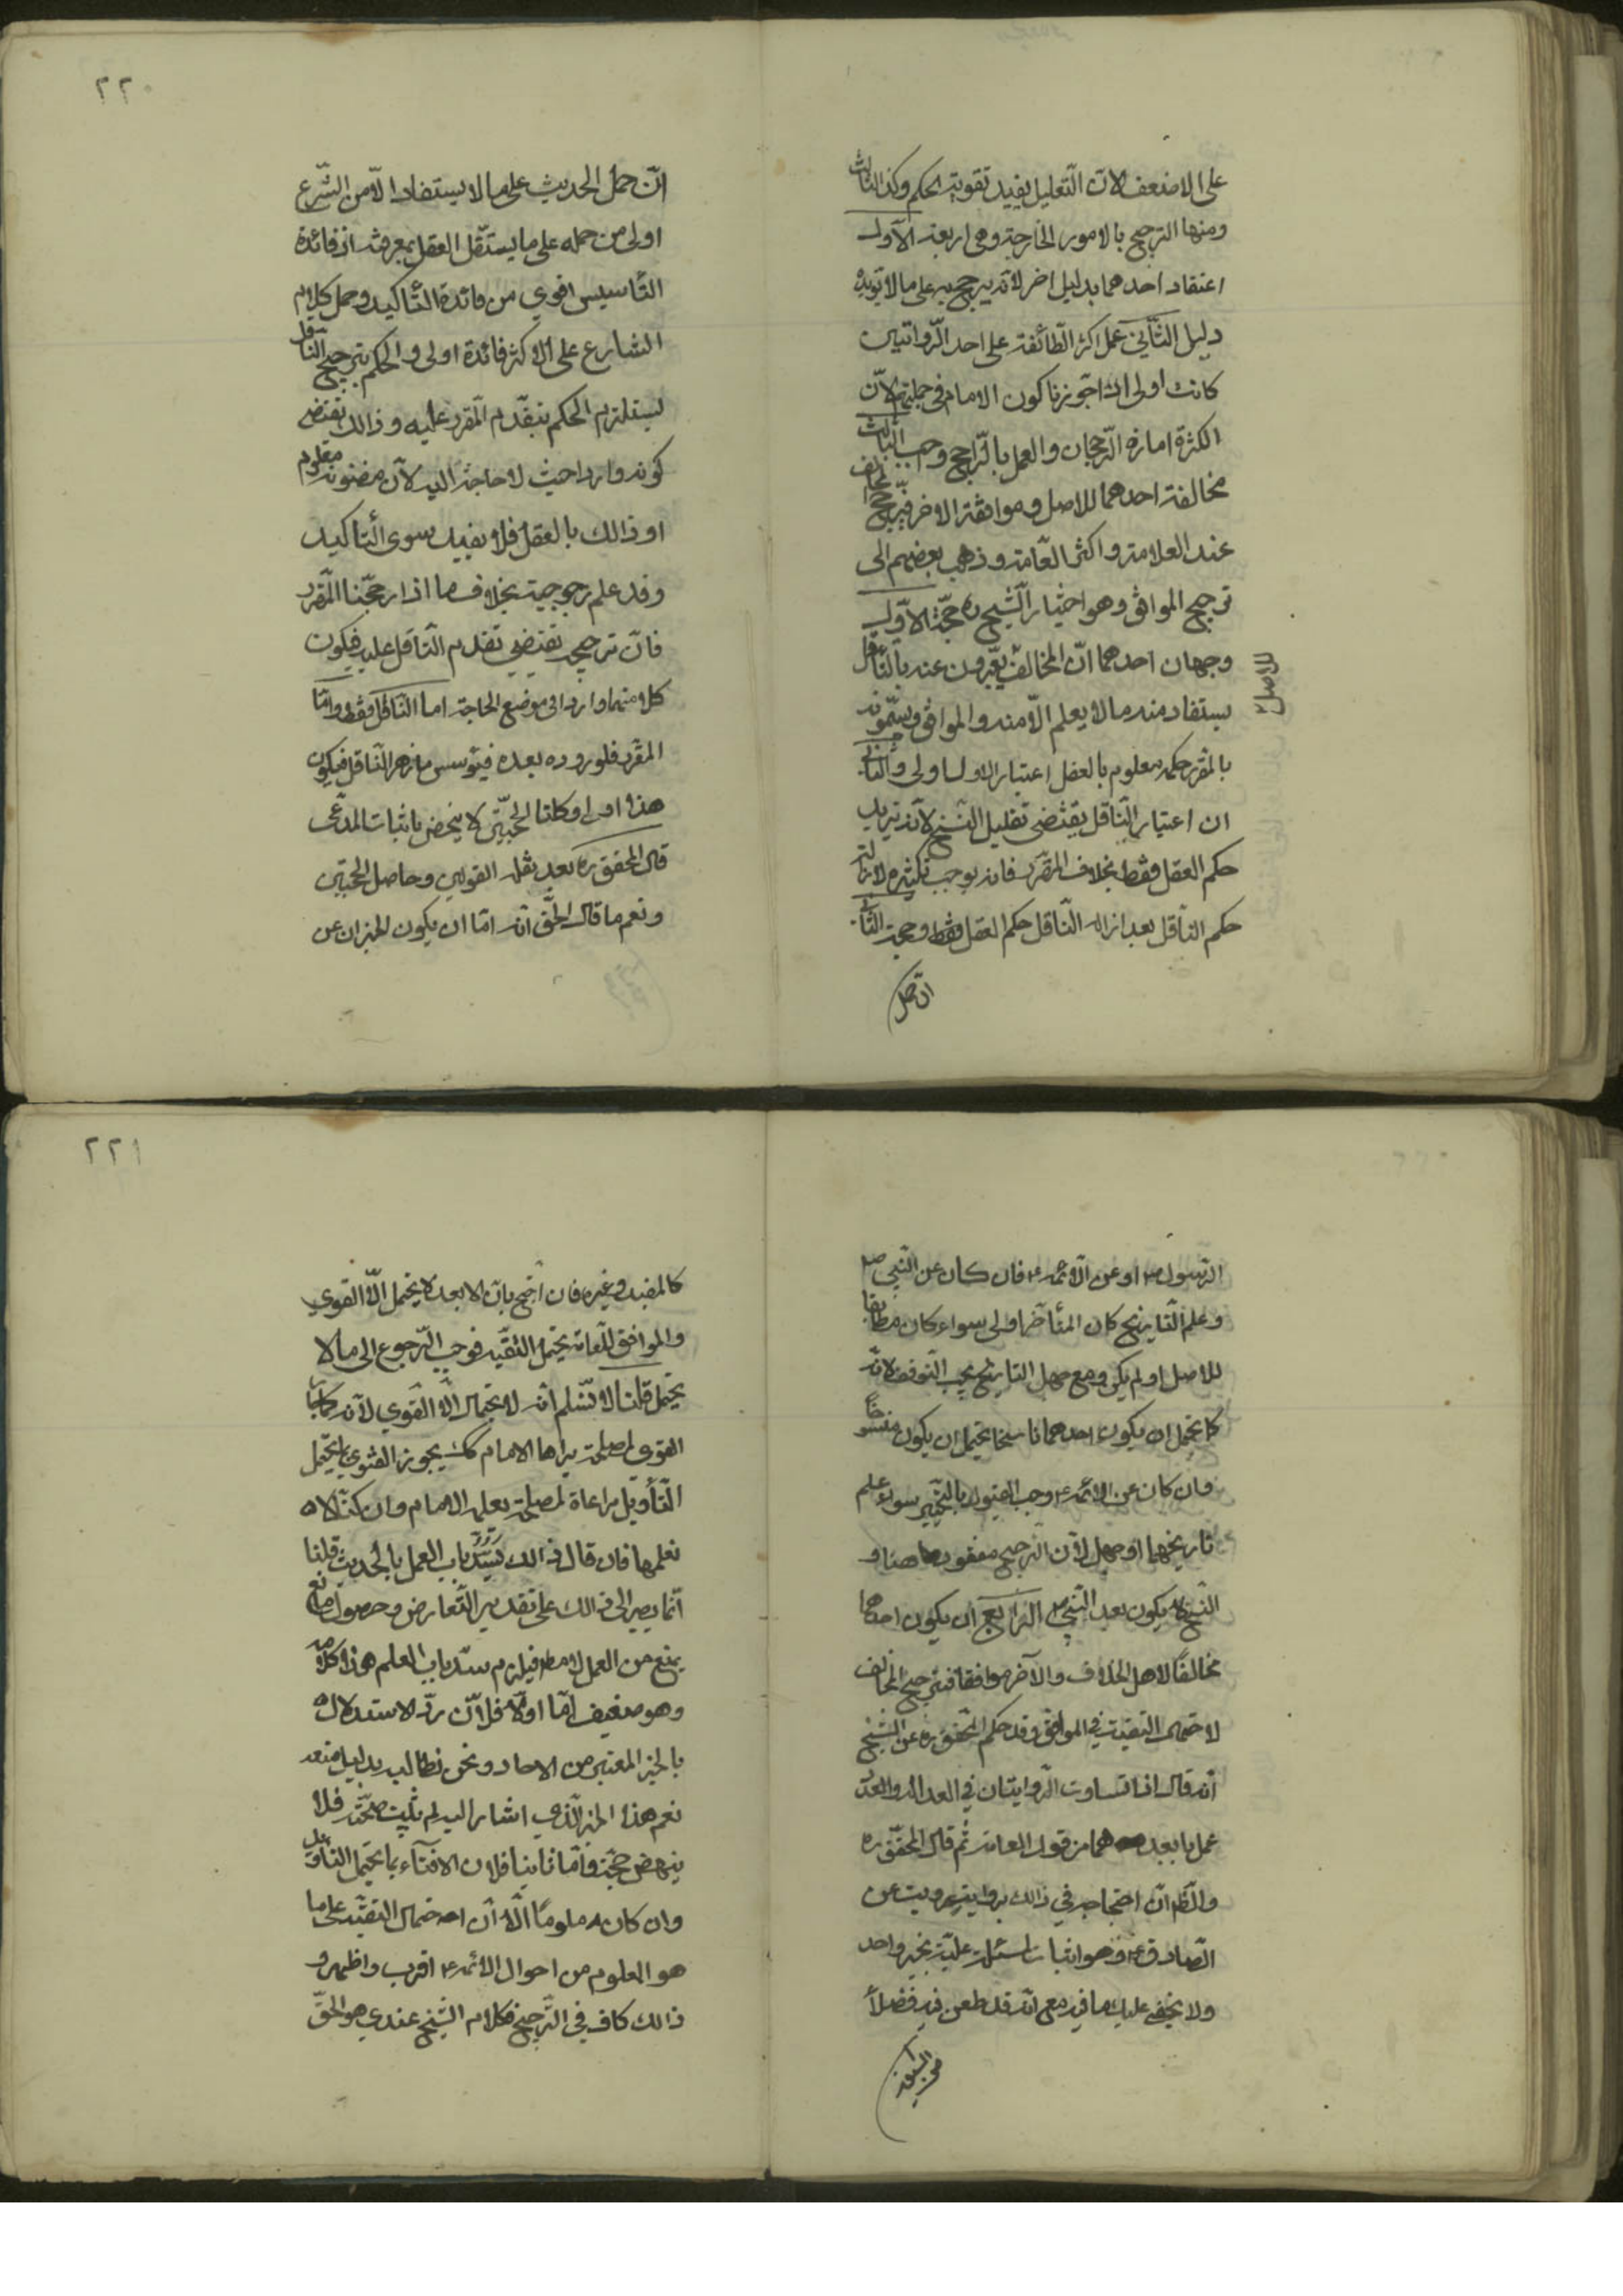 على الاضعف لان التّعليل يفيد تقوية الحكم وكذا الثالث
ومنها الترجيح بالامور الخارجة وهي اربعة الاوّل
اعتقاد احدهما بدليل اخر لانه يرجح به على ما لا تؤيده
دليل الثّاني عمل اكثر الطّائفة على احد الرّوايتين
كانت اولى اذا جوّزنا كون الامام في جملتهم لانّ
الكثرة امارة الرّجحان والعمل بالرّاجح وجب الثالث
مخالفة احدهما للاصل وموافقة الاخر فيرجّح المخالف
عند العلامة واكثر العامّة وذهب بعضهم الى
ترجيح الموافق وهو اختيار الشيخ ره حجّة الاوّل
وجهان احدهما انّ المخالف يعبّرون عنه بالنّاقل
للاصل
يستفاد منه ما لا يعلم الّا منه والموافق ويسمّونه
بالمقرر حكمه معلوم بالعقل اعتبار الاول اولى والثاني
ان اعتبار النّاقل يقتضي تقليل النّسخ لانه يزيل
حكم العقل فقط بخلاف المقرّر فانه يوجب تكثيره لازالته
حكم النّاقل بعد ازالة النّاقل حكم العقل فقط وحجة الثّاني
ان حمل
٢٢٠
انّ حمل الحديث على ما لا يستفاد الّا من الشّرع
اولى من حمله على ما يستقل العقل بمعرفته اذ فائدة
التّأسيس اقوي من فائدة التّأكيد وحمل كلام
الشارع على الاكثر فائدة اولى والحكم بترجيح النّاقل
يستلزم الحكم بتقدّم المقرر عليه وذالك يقتضي
كونه واردا حيث لا حاجة اليه لانّ مضمونه معلوم
اذ ذالك بالعقل فلا يفيد سوى التأكيد
وقد علم مرجوحيته بخلاف ما اذا رجّحنا المقرر
فانّ ترجيحه تقتضي تقدم النّاقل عليه فيكون
كل منهما واردا في موضع الحاجة اما النّاقل فظ وامّا
المقرر فلوروده بعده فيؤسس ما رفعه النّاقل فيكون
هذا اولى وكلتا الحجّتين لا ينهض باثبات المدّعى
قال المحقق ره بعد نقله القولين وحاصل الحجّتين
ونعم ما قال الحقّ انه امّا ان يكون الخبران عن
الرّسول ص او عن الائمّة ع فان كان عن النّبي ص
وعلم التّاريخ كان المتأخّر اولى سواء كان مطابقا
للاصل او لم يكن ومع جهل التاريخ يجب التّوقف لانّه
كما تحتمل ان يكون احدهما ناسخا يحتمل ان يكون منسوخاً
وان كان عن الائمّة ع وجب القول بالتّخيير سواء علم
تاريخهما او جهل لانّ التّرجيح مفقود هاهنا و
النّسخ لا يكون بعد النّبي ص الرّابع ان يكون احدهما
مخالفاً لاهل الخلاف والآخر موافقا فيرجّح المخالف
لاحتمال التقيّة في الموافق وقد حكى المحقق ره عن الشّيخ
انّه قال اذا تساوت الرّوايتان في العدالة والعدد
عمل بابعدهما من قول العامّة ثم قال المحقّق ره
والظّ انّ احتجاجه في ذالك برواية رويت عن
الصّادق ع وهو اثبات لمسئلة علميّة بخبر واحد
ولا يخفى عليك ما فيه مع انّه قد طعن فيه فضلاً
٢٢١
كالمفيد وغيره فان احتجّ بانّ الابعد لا يحتمل الّا الفتوي
والموافق للعامّة يحتمل التّقيّة فوجب الرّجوع الى ما لا
يحتمل قلنا لا نسّلم انّه لا يحتمل الّا الفتوي لانّه كما جاز
الفتوى لمصلحة يراها الامام كك يجوز الفتوي بما يحتمل
التّأويل مراعاة لمصلحة يعلمها الامام وان كنّا لا
نعلمها فان قال ذالك يسدّ باب العمل بالحديث قلنا
انّما يصير الى ذالك على تقدير التّعارض وحصول مانع
يمنع من العمل لا مط فيلزم سدّ باب العلم هذا كلامه
وهو ضعيف امّا اوّلاً فلانّ ردّ الاستدلال
بالخبر المعتبر من الاحاد ونحن نطالبه بدليل منعه
نعم هذا الخبر الّذي اشار اليه لم يثبت صحّته فلا
ينهض حجّة وامّا ثانيا فلان الافتاء بما يحتمل التّأويل
وان كان معلوماً الّا انّ احتمال التقيّة على ما
هو المعلوم من احوال الائمّة ع اقرب واظهر و
ذالك كاف في التّرجيح فكلام الشّيخ عندي هو الحقّ